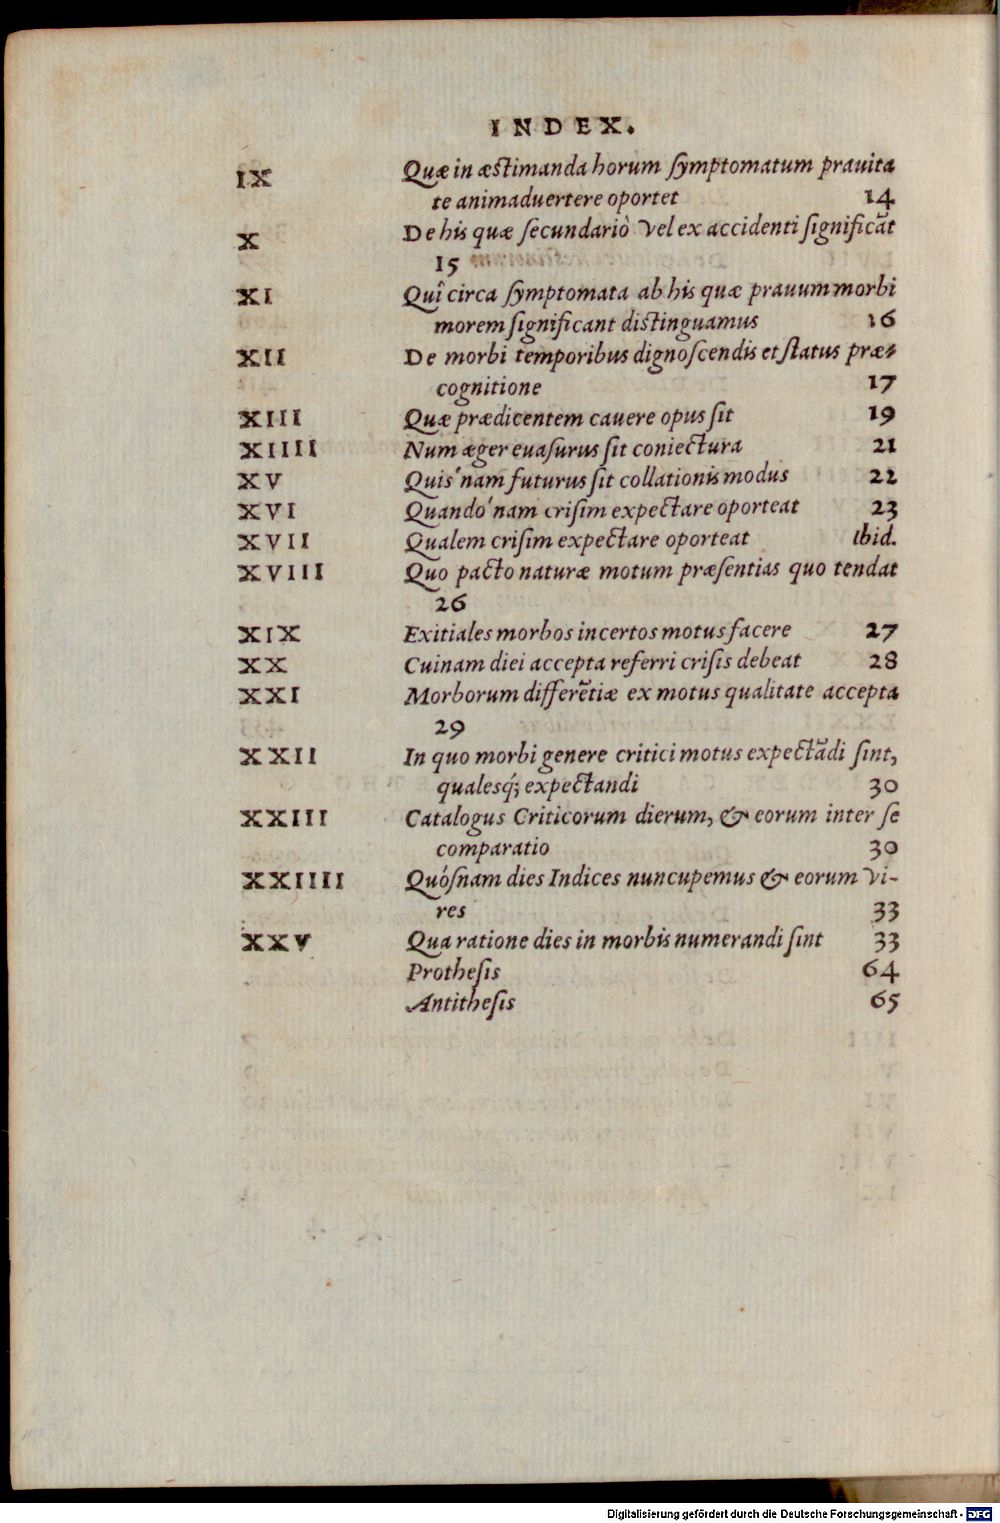 INDEX.
IX Quæ in æstimanda horum ſymptomatum prauita
te animaduertere oportet 14
X De his quæ ſecundariò vel ex accidenti ſignificāt
15
XI Quî circa ſymptomata ab his quæ prauum morbi
morem ſignificant distinguamus 16
XII De morbi temporibus dignoſcendis et ſtatus præ-
cognitione 17
XIII Quæ prædicentem cauere opus ſit 19
XIIII Num æger euaſurus ſit coniectura 21
XV Quis'nam futurus ſit collationis modus 22
XVI Quando'nam criſim expectare oporteat 23
XVII Qualem criſim expectare oporteat Ibid.
XVIII Quo pacto naturæ motum præſentias quo tendat
26
XIX Exitiales morbos incertos motus facere 27
XX Cuinam diei accepta referri criſis debeat 28
XXI Morborum differētiæ ex motus qualitate accepta
29
XXII In quo morbi genere critici motus expectādi ſint,
qualesq́; expectandi 30
XXIII Catalogus Criticorum dierum, & eorum inter ſe
comparatio 30
XXIIII Quóſnam dies Indices nuncupemus & eorum vi-
res 33
XXV Qua ratione dies in morbis numerandi ſint 33
Protheſis 64
Antitheſis 65
Digitalisierung gefördert durch die Deutsche Forschungsgemeinschaft - DFG